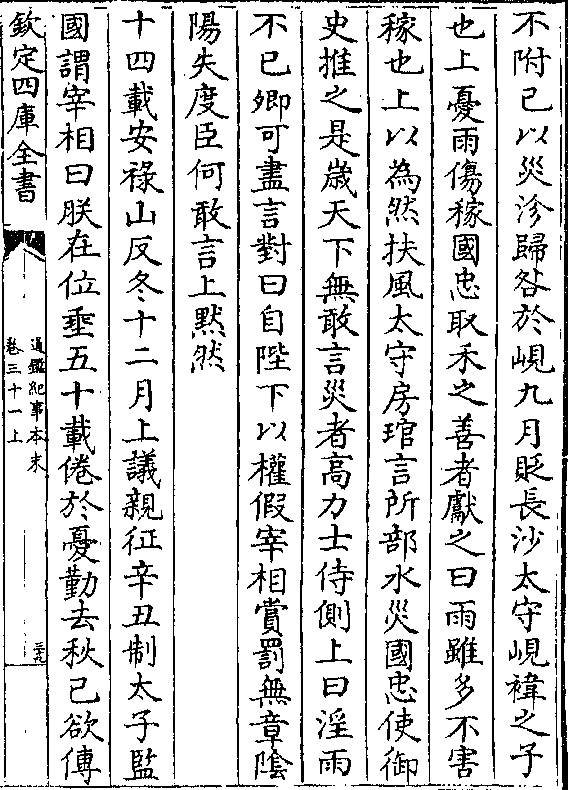 不附己以災沴歸咎於峴九月貶長沙太守峴禕之子
也上憂雨傷稼國忠取禾之善者獻之曰雨雖多不害
稼也上以為然扶風太守房琯言所部水災國忠使御
史推之是歲天下無敢言災者高力士侍側上曰淫雨
不已卿可盡言對曰自陛下以權假宰相賞罰無章陰
陽失度臣何敢言上默然
十四載安祿山反冬十二月上議親征辛丑制太子監
國謂宰相曰朕在位垂五十載倦於憂勤去秋已欲傳
欽定四庫全書
通鑑紀事本末
卷三十一上
三十九